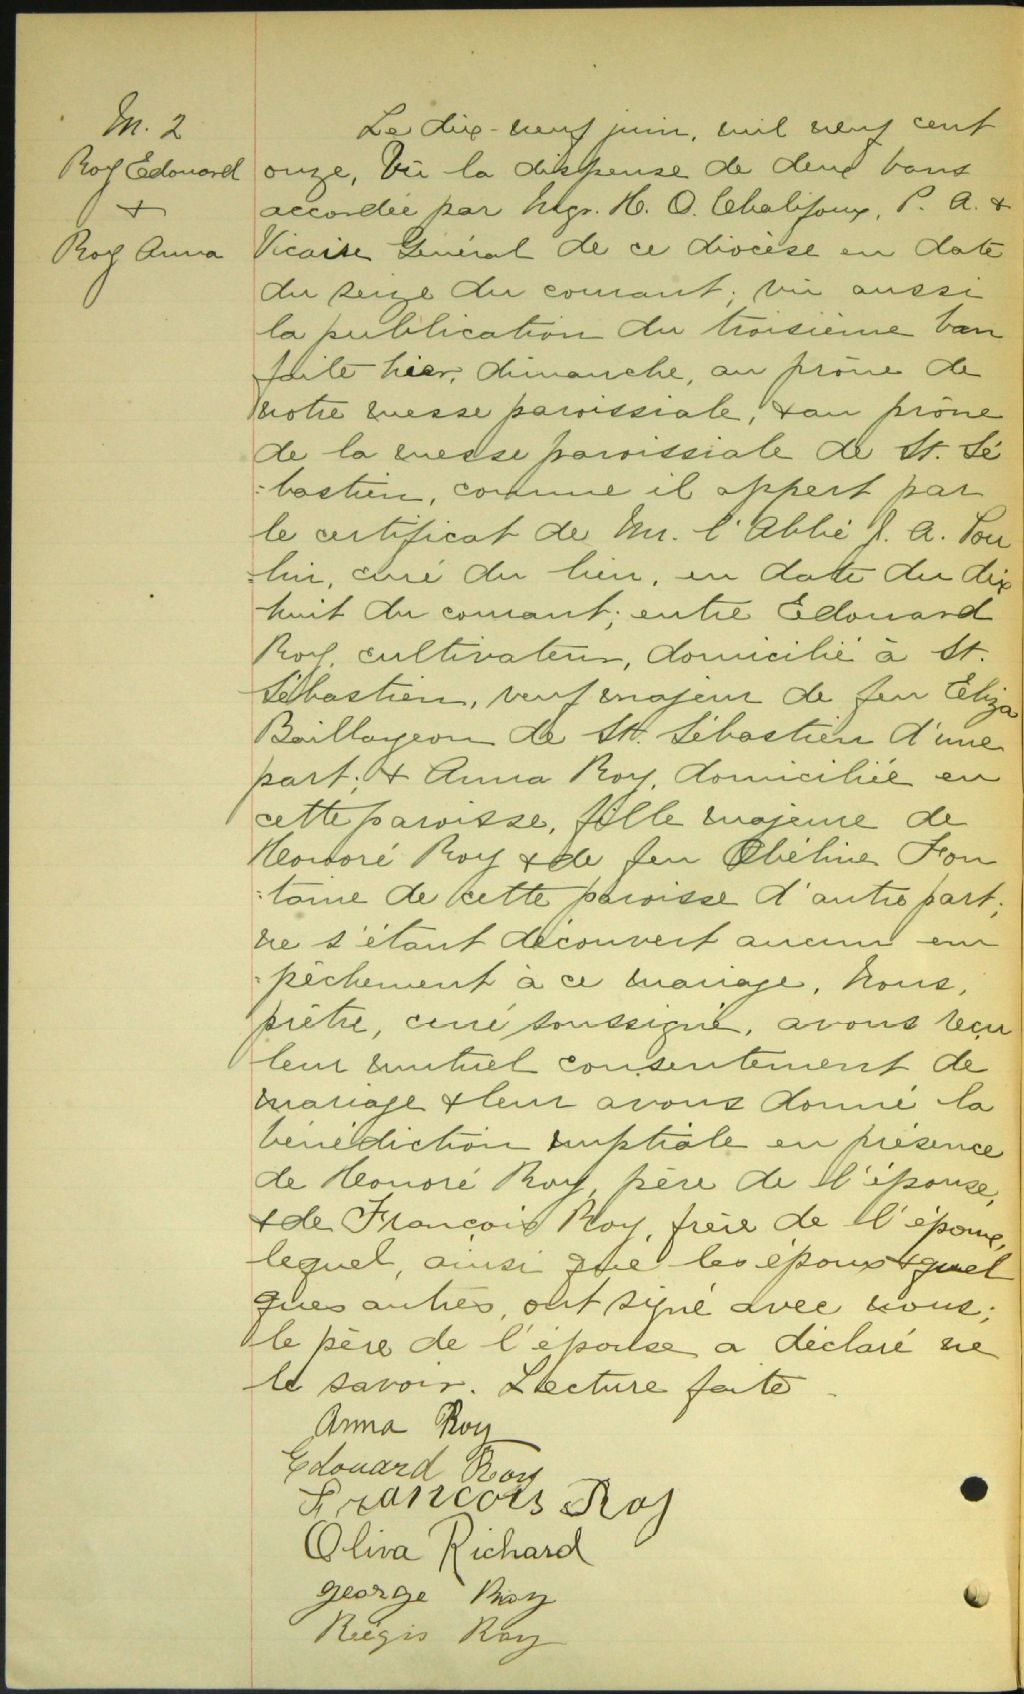 M. 2
Roy Edouard
+
Roy Anna
Le dix-neuf juin, mil neuf cent
onze, Vu la dispense de deux bans
accordée par Mgr. H. O. Chalifoux, P. A. &
Vicaire Général de ce diocèse en date
du seize du courant; vu aussi
la publication du troisième ban
faite hier, dimanche, au prône de
notre messe paroissiale, & au prône
de la messe paroissiale de St. Sé
=bastien, comme il appert par
le certificat de Mr. l'Abbé J. A. Pou
=lin, curé du lieu, en date du dix
-huit du courant; entre Edouard
Roy, cultivateur, domicilié à St.
Sébastien, veuf majeur de feu Eliza
Baillargeon de St. Sébastien d'une
part; & Anna Roy, domiciliée en
cette paroisse, fille majeure de
Honoré Roy & de feu Obéline Fon
=taine de cette paroisse d'autre part;
ne s'étant découvert aucun em
=pêchement à ce mariage, Nous,
prêtre, curé soussigné, avons reçu
leur mutuel consentement de
mariage & leur avons donné la
bénédiction nuptiale en présence
de Honoré Roy, père de l'épouse,
& de François Roy, frère de l'époux,
lequel, ainsi que les époux & quel
ques autres, ont signé avec nous;
le père de l'épouse a déclaré ne
le savoir. Lecture faite.
Anna Roy
Edouard Roy
Francois Roy
Oliva Richard
george Roy
Régis Roy